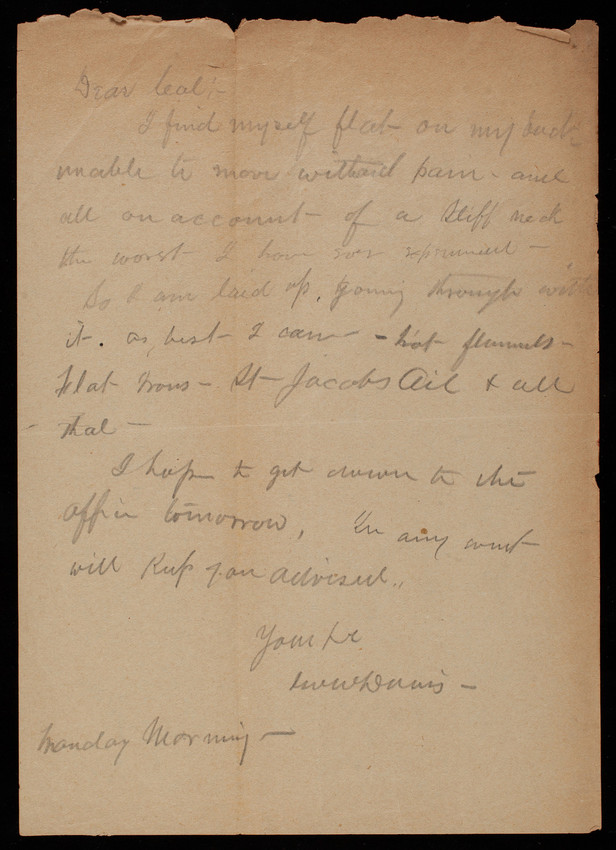 Dear Col:-
I find myself flat on my back
unable to move without pain - and
all on account - of a stiff neck
the worst I have ever experienced -
So I am laid up, going through with
it. as best I can - - hot flannels -
flat irons - St Jacobs Oil & all
that -
I hope to get down to the
office tomorrow, In any event
will keep you advised.,
Yours &c
Davis -
Monday Morning -